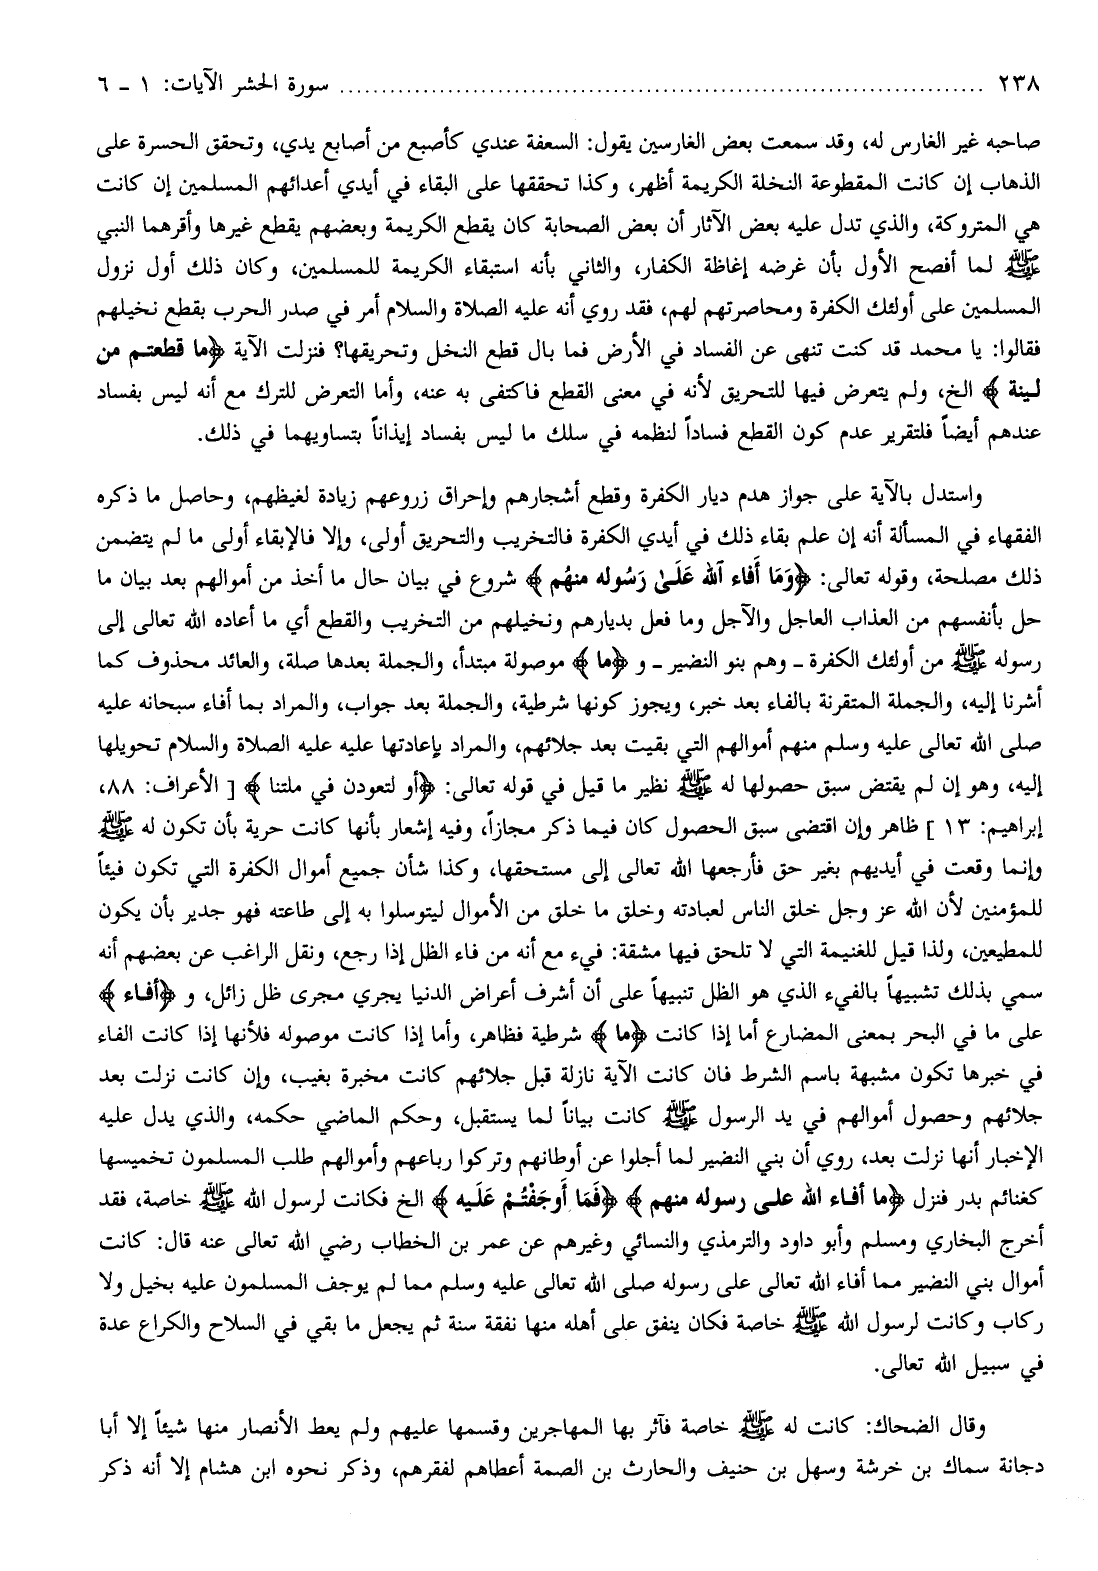 ٢٣٨ ........................................................................ سورة الحشر الآيات: ١ ـ ٦
صاحبه غير الغارس له، وقد سمعت بعض الغارسين يقول: السعفة عندي كأصبع من أصابع يدي، وتحقق الحسرة على
الذهاب إن كانت المقطوعة النخلة الكريمة أظهر، وكذا تحققها على البقاء في أيدي أعدائهم المسلمين إن كانت
هي المتروكة، والذي تدل عليه بعض الآثار أن بعض الصحابة كان يقطع الكريمة وبعضهم يقطع غيرها وأقرهما النبي
ﷺ لما أفصح الأول بأن غرضه إغاظة الكفار، والثاني بأنه استبقاء الكريمة للمسلمين، وكان ذلك أول نزول
المسلمين على أولئك الكفرة ومحاصرتهم لهم، فقد روي أنه عليه الصلاة والسلام أمر في صدر الحرب بقطع نخيلهم
فقالوا: يا محمد قد كنت تنهى عن الفساد في الأرض فما بال قطع النخل وتحريقها؟ فنزلت الآية ﴿ما قطعتم من
لينة﴾ الخ، ولم يتعرض فيها للتحريق لأنه في معنى القطع فاكتفى به عنه، وأما التعرض للترك مع أنه ليس بفساد
عندهم أيضاً فلتقرير عدم كون القطع فساداً لنظمه في سلك ما ليس بفساد إيذاناً بتساويهما في ذلك.
واستدل بالآية على جواز هدم ديار الكفرة وقطع أشجارهم وإحراق زروعهم زيادة لغيظهم، وحاصل ما ذكره
الفقهاء في المسألة أنه إن علم بقاء ذلك في أيدي الكفرة فالتخريب والتحريق أولى، وإلا فالإبقاء أولى ما لم يتضمن
ذلك مصلحة، وقوله تعالى: ﴿وَمَا أَفاء ٱلله عَلَىٰ رَسُوله منهُم﴾ شروع في بيان حال ما أخذ من أموالهم بعد بيان ما
حل بأنفسهم من العذاب العاجل والآجل وما فعل بديارهم ونخيلهم من التخريب والقطع أي ما أعاده الله تعالى إلى
رسوله ﷺ من أولئك الكفرة ـ وهم بنو النضير ـ و ﴿ما﴾ موصولة مبتدأ، والجملة بعدها صلة، والعائد محذوف كما
أشرنا إليه، والجملة المتقرنة بالفاء بعد خبر، ويجوز كونها شرطية، والجملة بعد جواب، والمراد بما أفاء سبحانه عليه
صلى الله تعالى عليه وسلم منهم أموالهم التي بقيت بعد جلائهم، والمراد بإعادتها عليه عليه الصلاة والسلام تحويلها
إليه، وهو إن لم يقتض سبق حصولها له ﷺ نظير ما قيل في قوله تعالى: ﴿أو لتعودن في ملتنا﴾ [ الأعراف: ٨٨،
إبراهيم: ١٣ ] ظاهر وإن اقتضى سبق الحصول كان فيما ذكر مجازاً، وفيه إشعار بأنها كانت حرية بأن تكون له ﷺ
وإنما وقعت في أيديهم بغير حق فأرجعها الله تعالى إلى مستحقها، وكذا شأن جميع أموال الكفرة التي تكون فيئاً
للمؤمنين لأن الله عز وجل خلق الناس لعبادته وخلق ما خلق من الأموال ليتوسلوا به إلى طاعته فهو جدير بأن يكون
للمطيعين، ولذا قيل للغنيمة التي لا تلحق فيها مشقة: فيء مع أنه من فاء الظل إذا رجع، ونقل الراغب عن بعضهم أنه
سمي بذلك تشبيهاً بالفيء الذي هو الظل تنبيهاً على أن أشرف أعراض الدنيا يجري مجرى ظل زائل، و ﴿أفاء﴾
على ما في البحر بمعنى المضارع أما إذا كانت ﴿ما﴾ شرطية فظاهر، وأما إذا كانت موصوله فلأنها إذا كانت الفاء
في خبرها تكون مشبهة باسم الشرط فان كانت الآية نازلة قبل جلائهم كانت مخبرة بغيب، وإن كانت نزلت بعد
جلائهم وحصول أموالهم في يد الرسول ﷺ كانت بياناً لما يستقبل، وحكم الماضي حكمه، والذي يدل عليه
الإخبار أنها نزلت بعد، روي أن بني النضير لما أجلوا عن أوطانهم وتركوا رباعهم وأموالهم طلب المسلمون تخميسها
كغنائم بدر فنزل ﴿ما أفاء الله على رسوله منهم﴾ ﴿فَمَا أَوجَفْتُمْ عَلَيه﴾ الخ فكانت لرسول الله ﷺ خاصة، فقد
أخرج البخاري ومسلم وأبو داود والترمذي والنسائي وغيرهم عن عمر بن الخطاب رضي الله تعالى عنه قال: كانت
أموال بني النضير مما أفاء الله تعالى على رسوله صلى الله تعالى عليه وسلم مما لم يوجف المسلمون عليه بخيل ولا
ركاب وكانت لرسول الله ﷺ خاصة فكان ينفق على أهله منها نفقة سنة ثم يجعل ما بقي في السلاح والكراع عدة
في سبيل الله تعالى.
وقال الضحاك: كانت له ﷺ خاصة فآثر بها المهاجرين وقسمها عليهم ولم يعط الأنصار منها شيئاً إلا أبا
دجانة سماك بن خرشة وسهل بن حنيف والحارث بن الصمة أعطاهم لفقرهم، وذكر نحوه ابن هشام إلا أنه ذكر